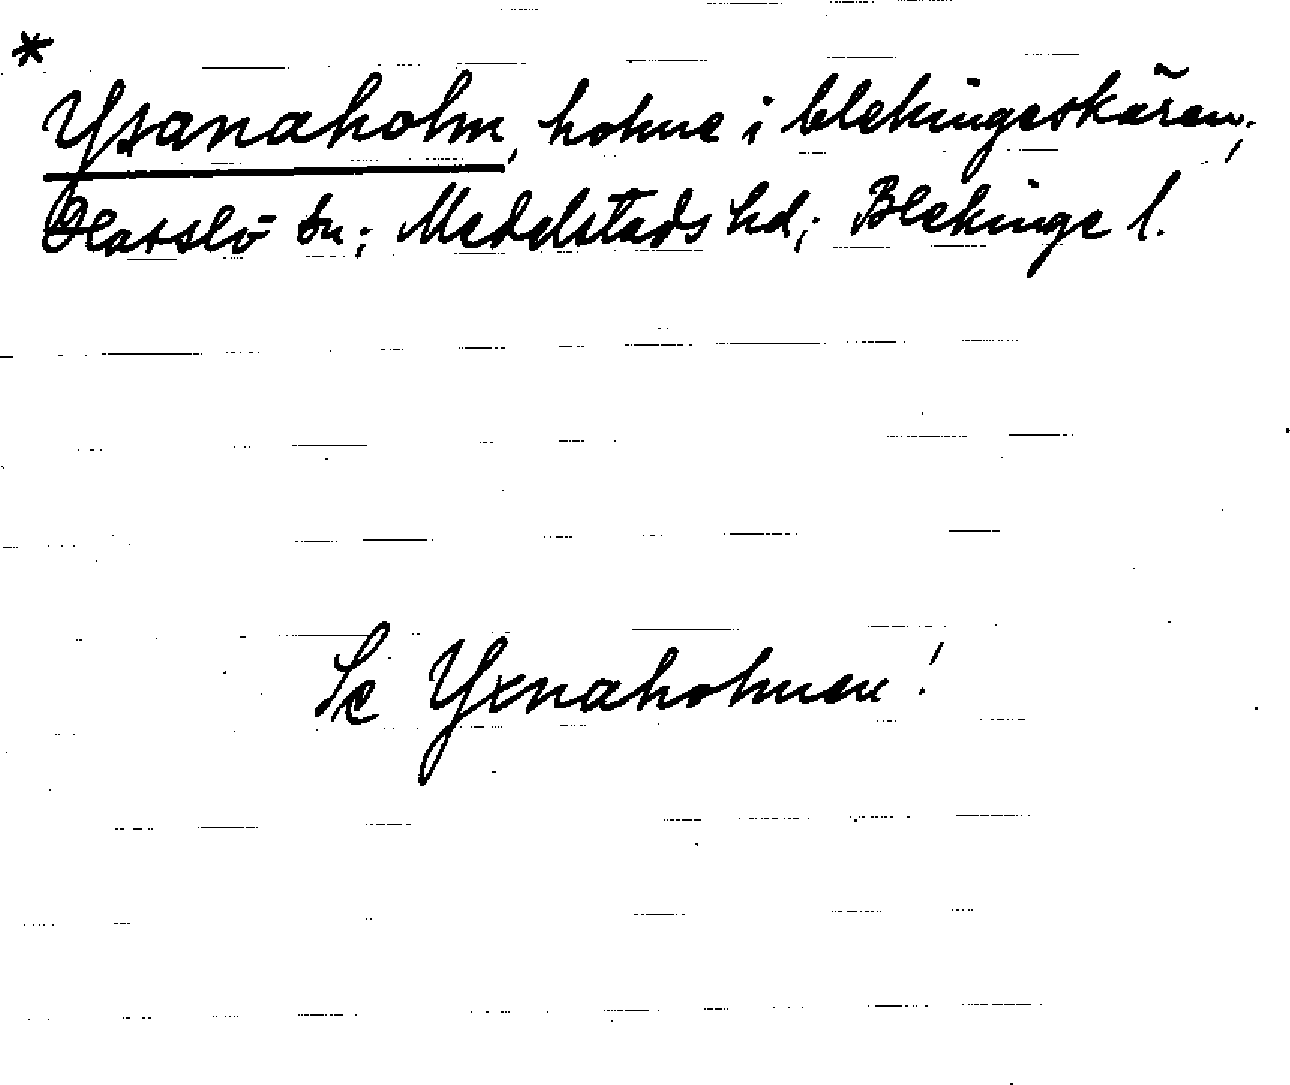 * Ysanaholm, holme i blekingeskären;
Hasslö sn; Medelstads hd; Blekinge l.
Se Yxnaholmen!